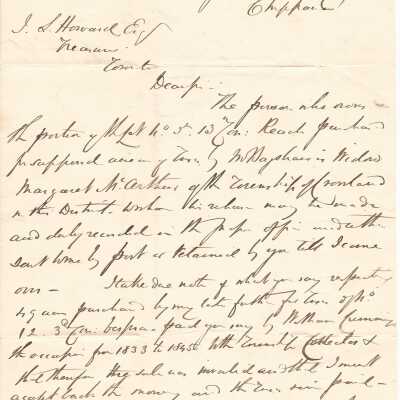 Chippawa
J. S. Howard Esq
Treasurer
Toronto
Dear Sir
The person who owns
the portion of the Lot No. 5. 13 Con: Reach purchased
supposed arrears of Taxes by Mr Hagshaw is Widow
Margaret McArthur of the Township of Crowland
in this District. to whom his release may be made
and duly recorded in the proper office and either
Sent home by post or retained by you till I come
over — I take due note of what you say respecting
by my late father for Taxes of No
12. 3d Con: Vespra — paid you say by William
the occupier from 1833 to 1845 to the Township Collector &
that therefore the sale was invalid and that I must
accept back the money and the Taxes since paid —